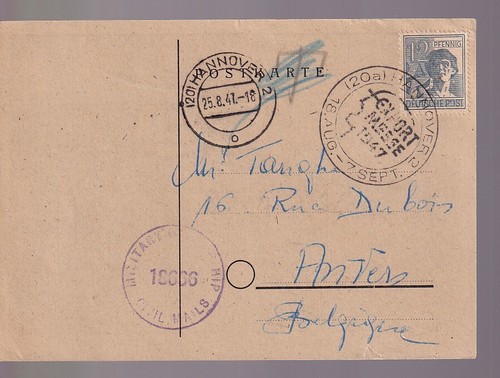 POSTKARTE
(20) HANNOVER 2
25.8.47.-18
o
(20a) HANNOVER 2
EXPORT
MESSE
1947
18.AUG.-7.SEPT.
12 PFENNIG
DEUTSCHE POST
Mr Tanghe
16 Rue Dubois
Anvers
Belgique
MILITARY CENSORSHIP
18666
CIVIL MAILS